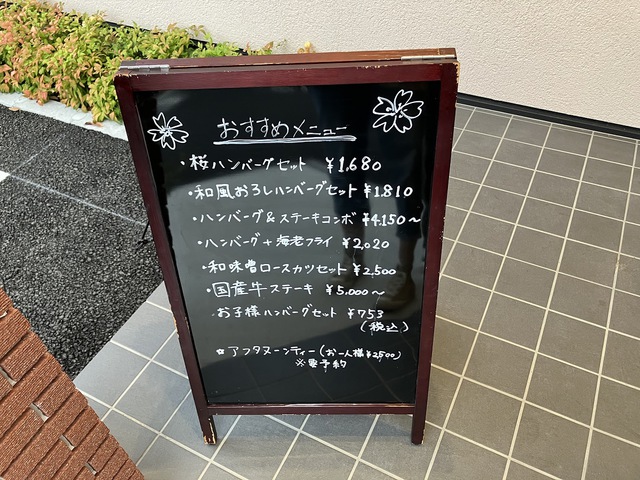 おすすめメニュー
・桜ハンバーグセット ¥1,680
・和風おろしハンバーグセット ¥1,810
・ハンバーグ&ステーキコンボ ¥4,150〜
・ハンバーグ+海老フライ ¥2,020
・和味噌ロースカツセット ¥2,500
・国産牛ステーキ ¥5,000〜
・お子様ハンバーグセット ¥753
(税込)
☆アフタヌーンティー(お一人様¥2500)
※要予約